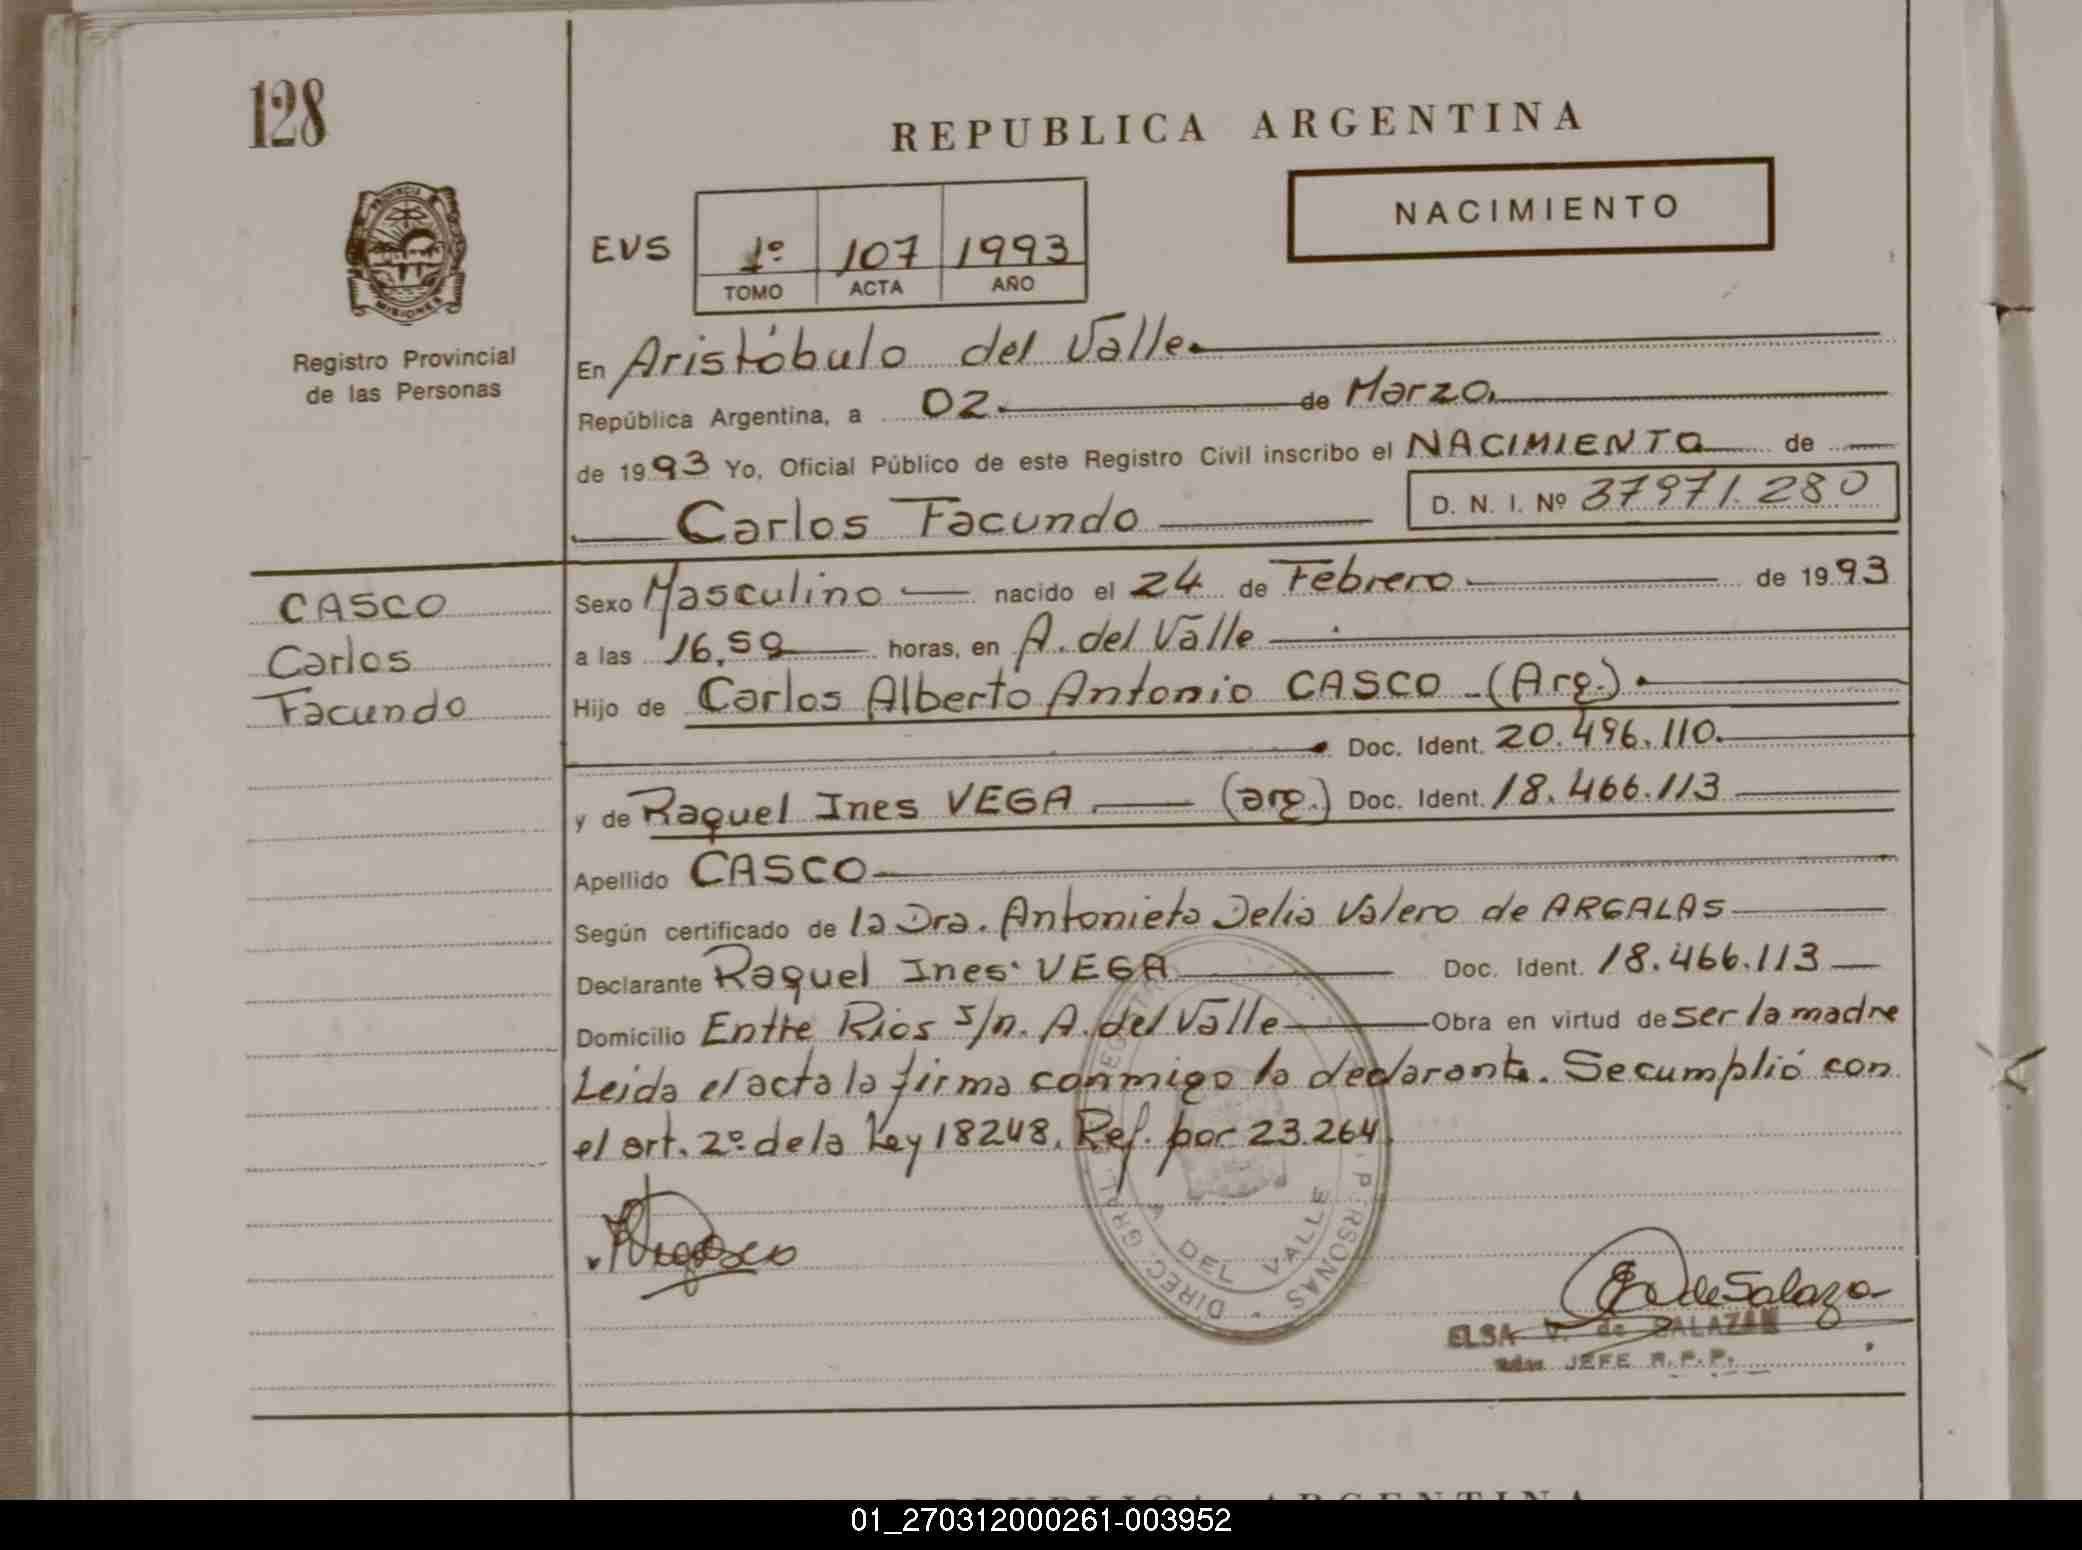 128
REPUBLICA ARGENTINA
NACIMIENTO
EVS
1º 107 1993
TOMO ACTA AÑO
PROVINCIA
MISIONES
Registro Provincial
de las Personas
En Aristóbulo del Valle
República Argentina, a 02 de Marzo
de 1993 Yo, Oficial Público de este Registro Civil inscribo el NACIMIENTO de
Carlos Facundo
D. N. I. Nº 37971.280
CASCO
Carlos
Facundo
Sexo Masculino nacido el 24 de Febrero de 1993
a las 16,50 horas, en A. del Valle
Hijo de Carlos Alberto Antonio CASCO - (Arg.)
Doc. Ident. 20.496.110.
y de Raquel Ines VEGA (arg.) Doc. Ident. 18.466.113
Apellido CASCO
Según certificado de la Dra. Antonieta Delia Valero de ARGALAS
Declarante Raquel Ines VEGA Doc. Ident. 18.466.113
Domicilio Entre Rios s/n. A. del Valle Obra en virtud de ser la madre
Leida el acta la firma conmigo la declarante. Se cumplió con
el art. 2º de la Ley 18248. Ref. por 23.264.
DIREC. GRAL. PERSONAS
A DEL VALLE
ELSA V. de SALAZAR
JEFE R.P.P.
REPUBLICA ARGENTINA
01_270312000261-003952